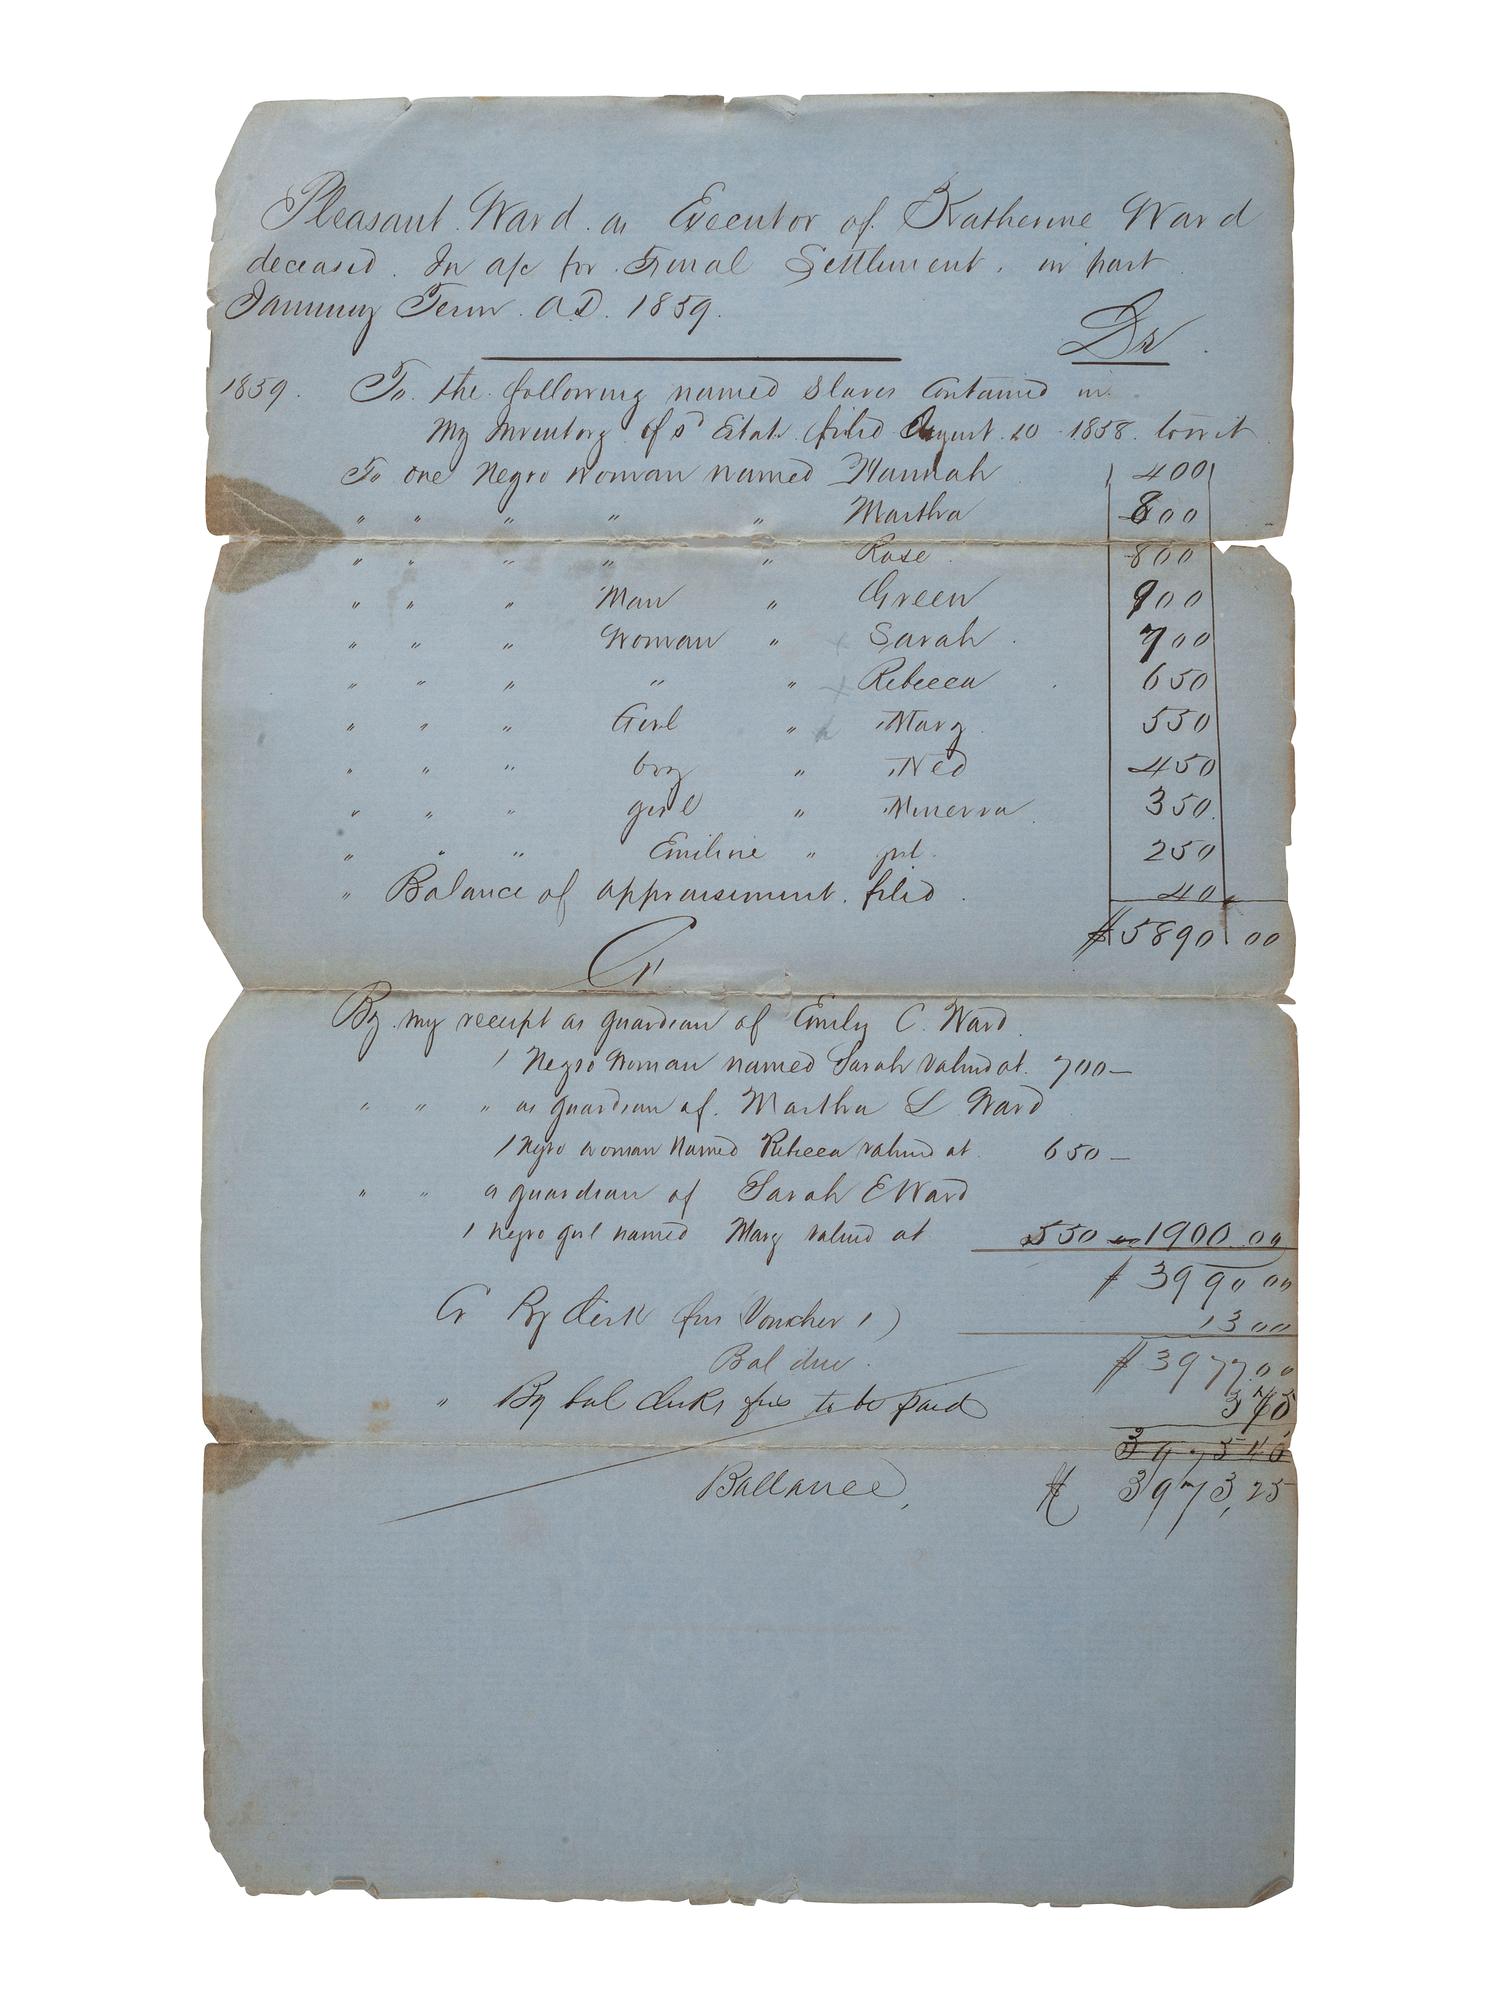 Pleasant Ward as Executor of Katherine Ward
deceased. In a/c for Final Settlement, in part
January Term A.D. 1859.
Dr
1859. To the following named Slaves Contained in
My Inventory of sd Estate filed August 20 1858. towit
To one Negro Woman named Hannah 400
" " " " " Martha 800
" " " " " Rose 800
" " " Man " Green 900
" " " Woman " Sarah 700
" " " " " Rebecca 650
" " " Girl " Mary 550
" " " boy " Ned 450
" " " girl " Minerva 350
" " " Emiline " girl 250
" Balance of appraisement filed 40
$5890.00
Cr
By my receipt as guardian of Emily C. Ward
1 Negro Woman named Sarah valued at 700—
" " " as guardian of Martha L Ward
1 Negro woman Named Rebecca valued at 650—
" " as guardian of Sarah E Ward
1 negro girl named Mary valued at 550 1900.00
$3990 00
Cr By clerk fees Voucher 1) 13 00
Bal due $3977.00
" By bal clerks fees to be paid 3 75
Ballance, $ 3973,25